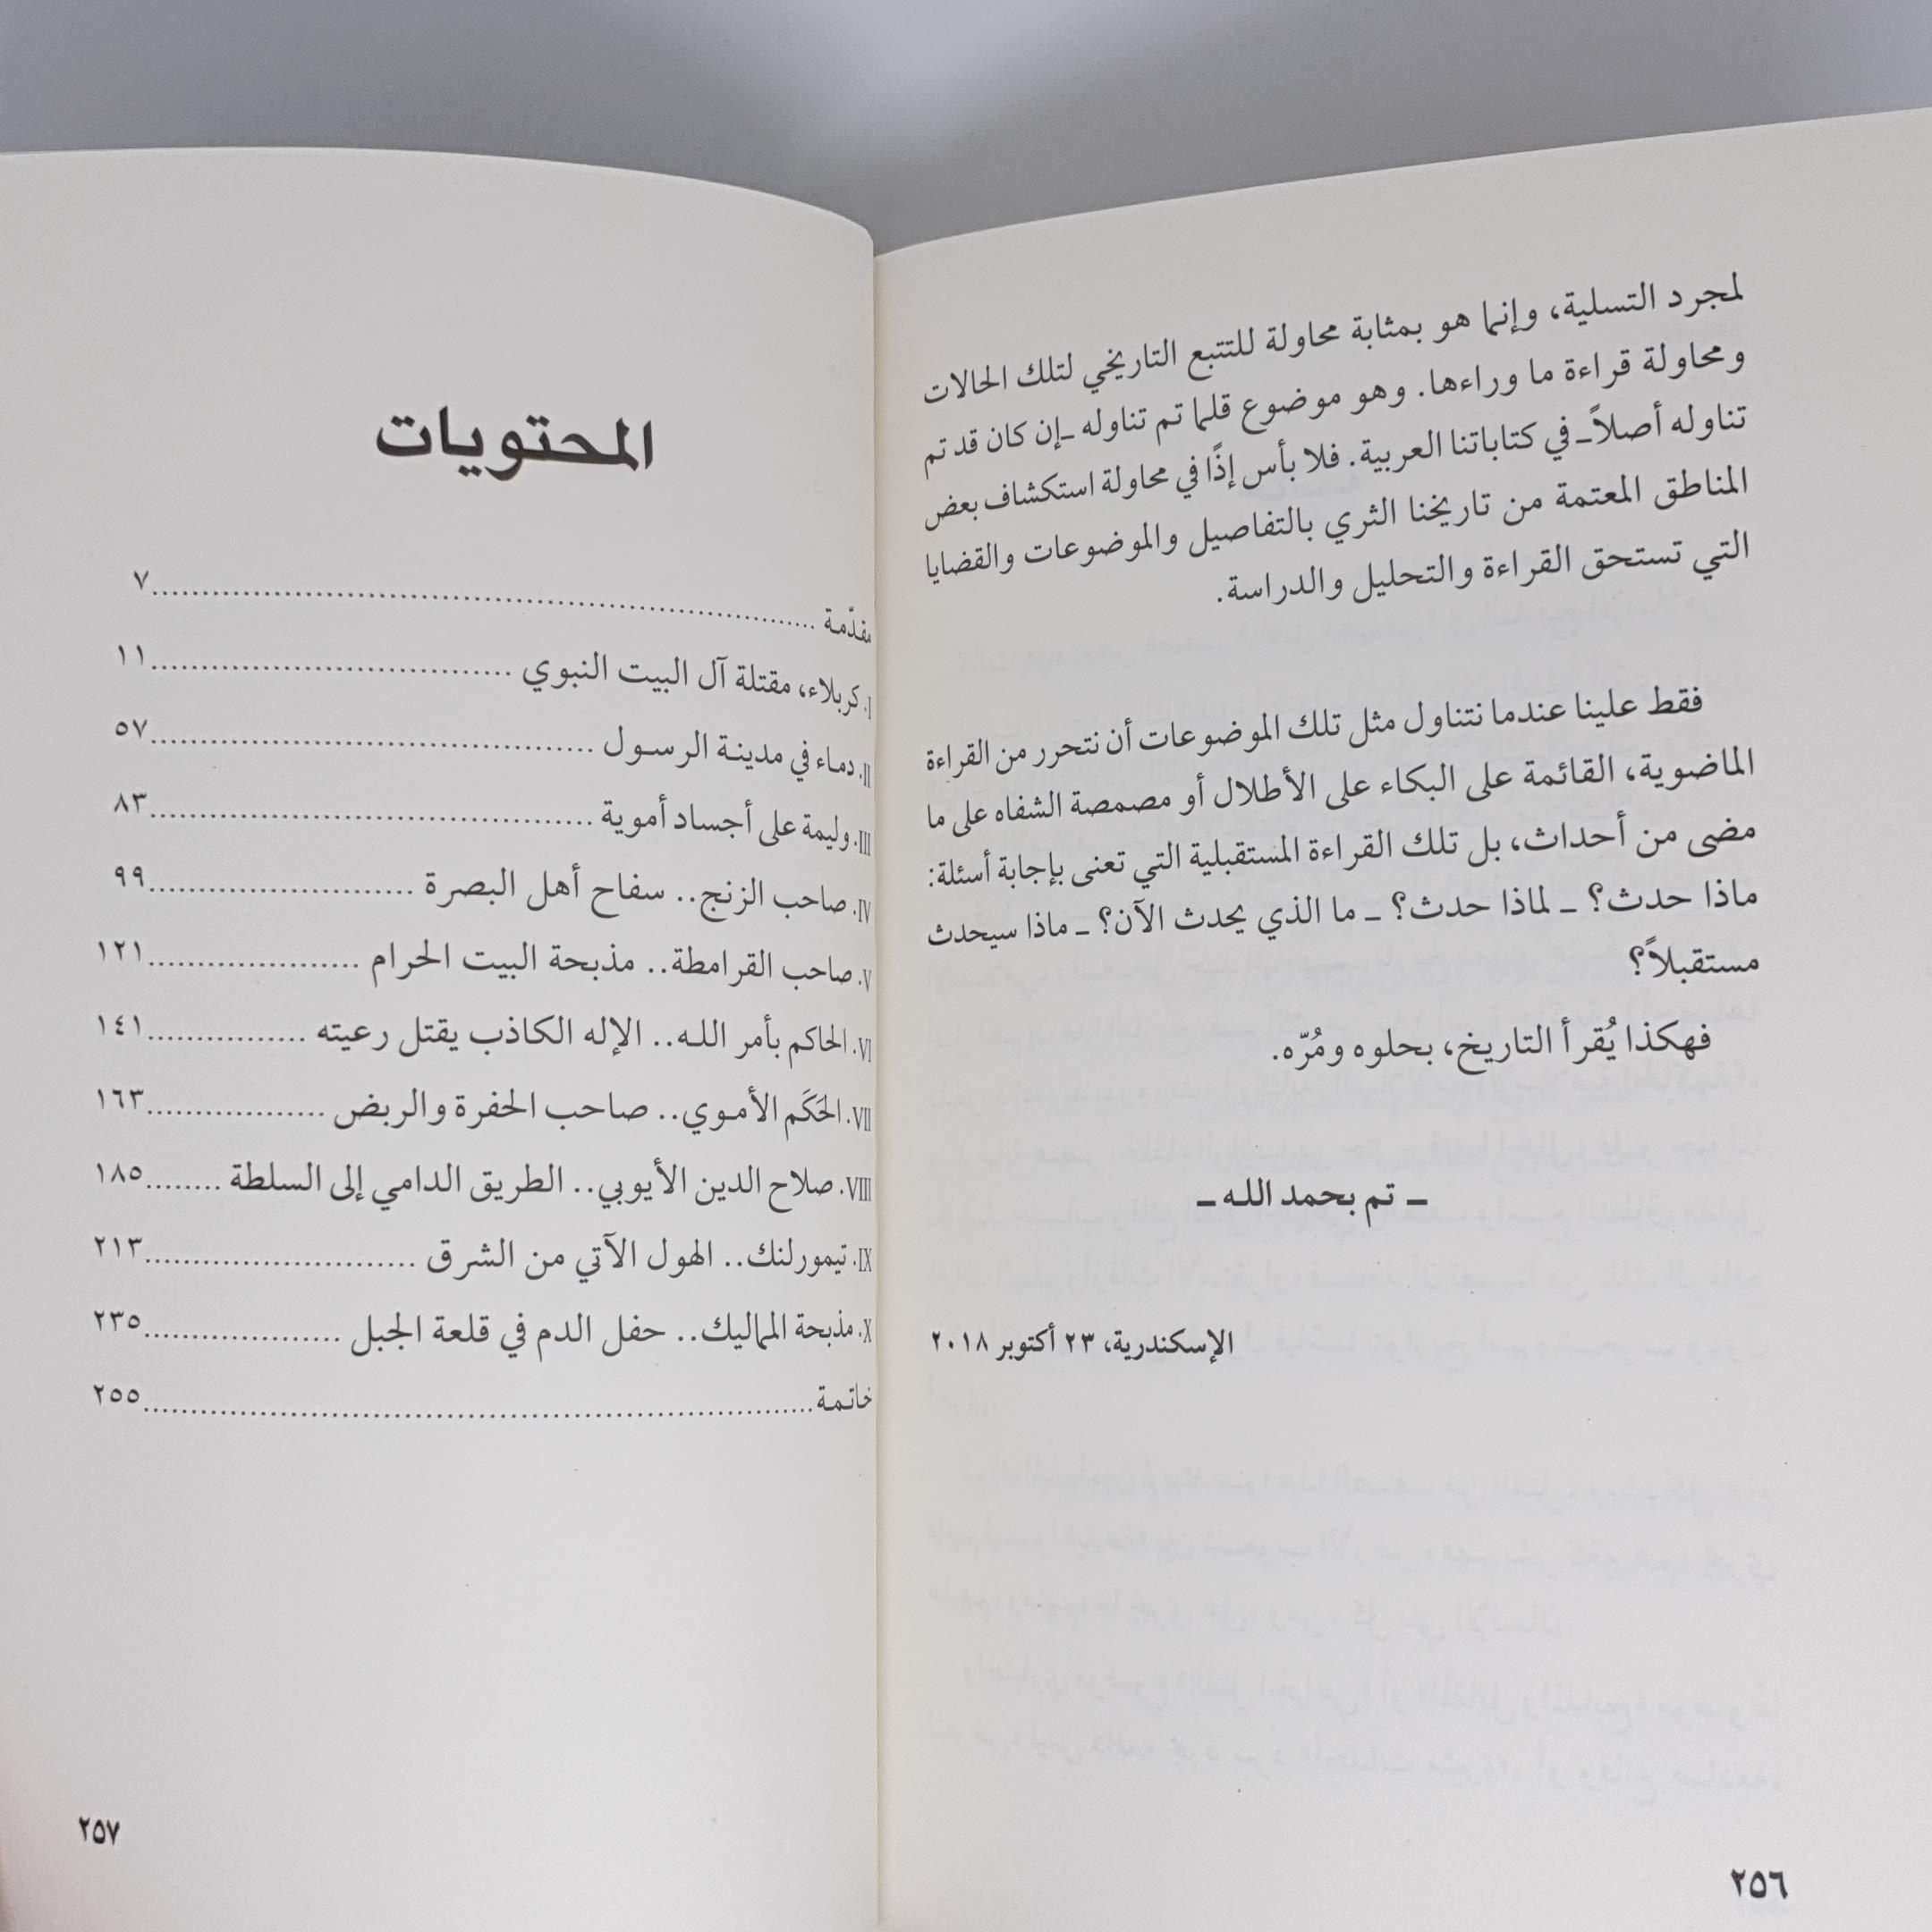 لمجرد التسلية، وإنما هو بمثابة محاولة للتتبع التاريخي لتلك الحالات
ومحاولة قراءة ما وراءها. وهو موضوع قلما تم تناوله ـإن كان قد تم
تناوله أصلاًـ في كتاباتنا العربية. فلا بأس إذًا في محاولة استكشاف بعض
المناطق المعتمة من تاريخنا الثري بالتفاصيل والموضوعات والقضايا
التي تستحق القراءة والتحليل والدراسة.
فقط علينا عندما نتناول مثل تلك الموضوعات أن نتحرر من القراءة
الماضوية، القائمة على البكاء على الأطلال أو مصمصة الشفاه على ما
مضى من أحداث، بل تلك القراءة المستقبلية التي تعنى بإجابة أسئلة:
ماذا حدث؟ ـ لماذا حدث؟ ـ ما الذي يحدث الآن؟ ـ ماذا سيحدث
مستقبلاً؟
فهكذا يُقرأ التاريخ، بحلوه ومُرّه.
ـ تم بحمد الله ـ
الإسكندرية، ٢٣ أكتوبر ٢٠١٨
٢٥٦
المحتويات
مقدّمة ........ ٧
I. كربلاء، مقتلة آل البيت النبوي ........ ١١
II. دماء في مدينة الرسول ........ ٥٧
III. وليمة على أجساد أموية ........ ٨٣
IV. صاحب الزنج.. سفاح أهل البصرة ........ ٩٩
V. صاحب القرامطة.. مذبحة البيت الحرام ........ ١٢١
VI. الحاكم بأمر الله.. الإله الكاذب يقتل رعيته ........ ١٤١
VII. الحَكَم الأموي.. صاحب الحفرة والربض ........ ١٦٣
VIII. صلاح الدين الأيوبي.. الطريق الدامي إلى السلطة ........ ١٨٥
IX. تيمورلنك.. الهول الآتي من الشرق ........ ٢١٣
X. مذبحة المماليك.. حفل الدم في قلعة الجبل ........ ٢٣٥
خاتمة ........ ٢٥٥
٢٥٧